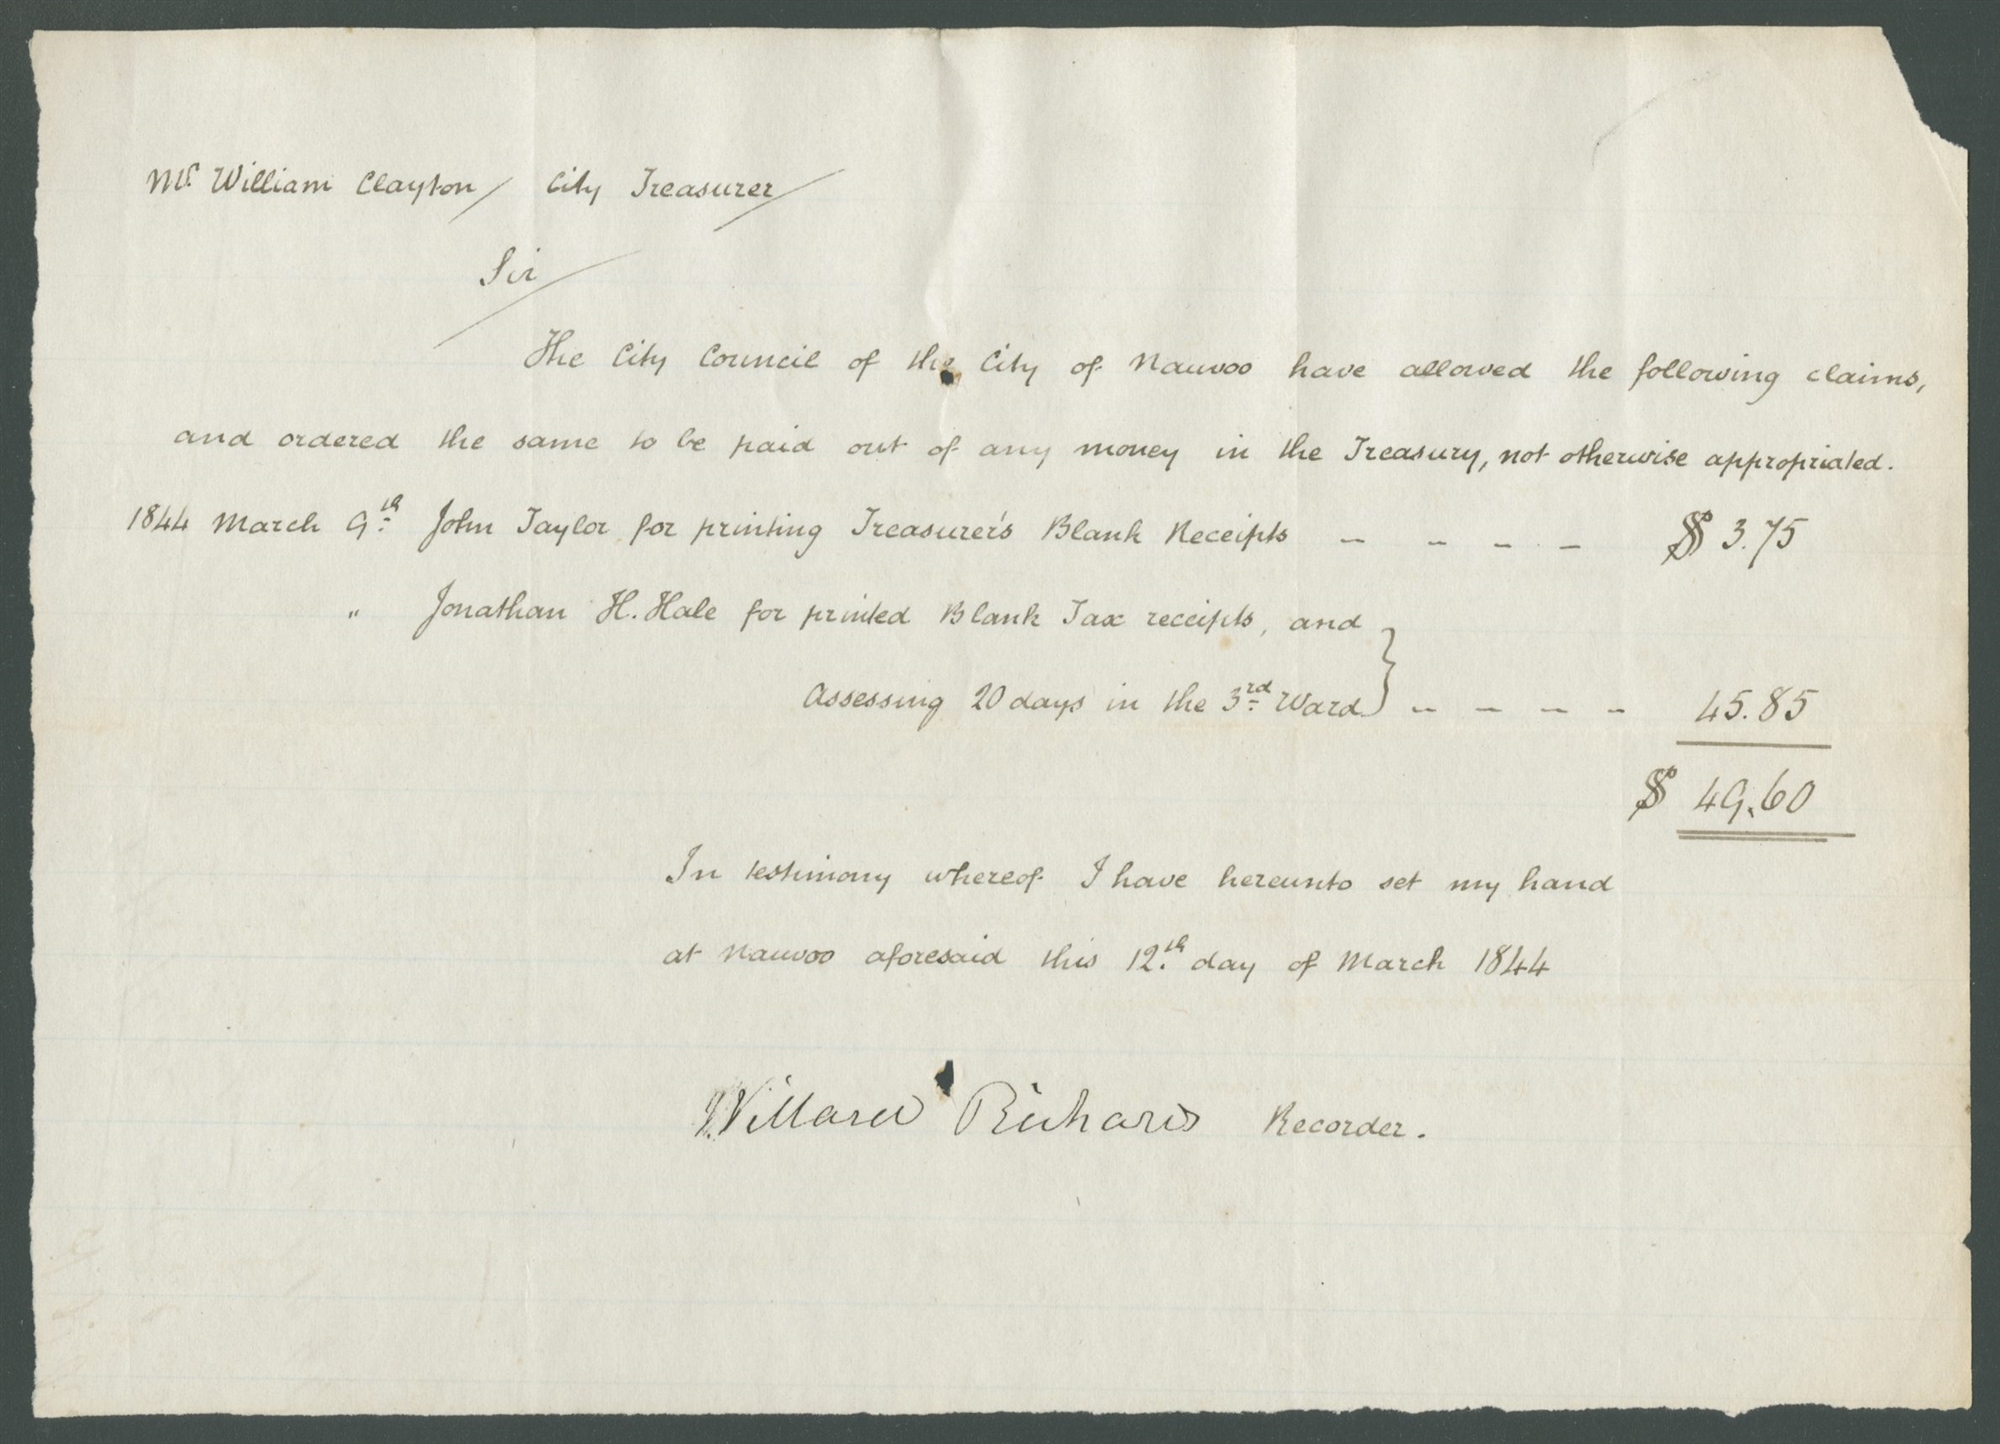 Mr. William Clayton/ City Treasurer/
Sir/
The City Council of the City of Nauvoo have allowed the following claims,
and ordered the same to be paid out of any money in the Treasury, not otherwise appropriated.
1844 March 9th John Taylor for printing Treasurer's Blank Receipts - - - - $ 3.75
" Jonathan H. Hale for printed Blank Tax receipts, and
Assessing 20 days in the 3rd Ward} - - - - 45.85
$ 49.60
In testimony whereof I have hereunto set my hand
at Nauvoo aforesaid this 12th day of March 1844
Willard Richards Recorder.